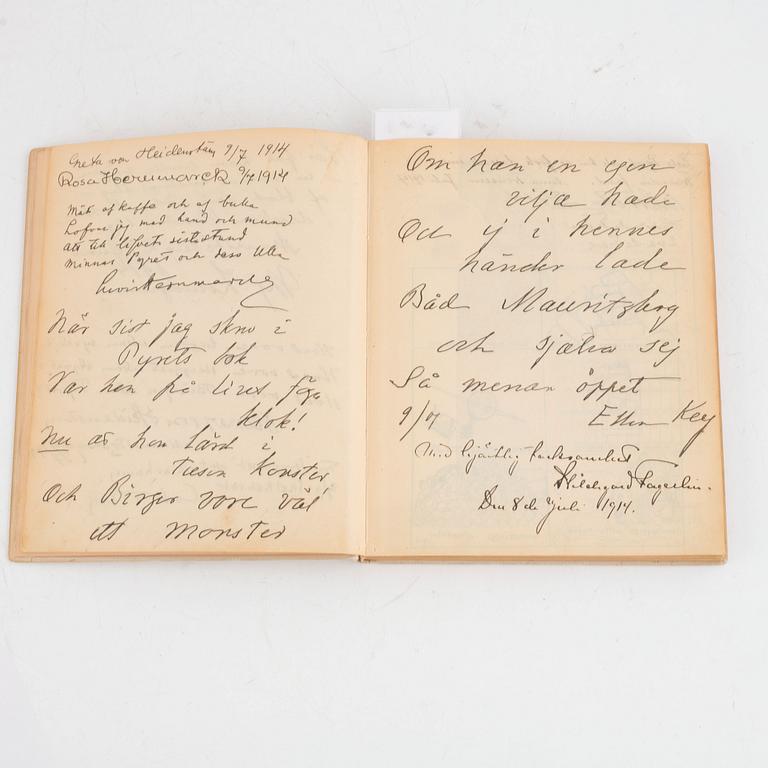 Greta von Heidenstam 9/7 1914
Rosa Hernmarck 9/7 1914
Mätt af kaffe och af bulla
Lofvar jag med hand och mund
att till lifvets sista stund
minnas Pyret och dess Ulla
Hernmarck
När sist jag skrev i
Pyrets bok
Var hon på livet föga
klok!
Nu är hon lärd i
tusen konster
Och Birger vore väl
ett monster
Om han en egen
vilja hade
Och ej i hennes
händer lade
Båd Mauritzberg
och själva sej
Så menar öppet
9/7 Ellen Key
Med hjärtlig tacksamhet
Hildegard Fagerlin.
Den 8de Juli 1914.